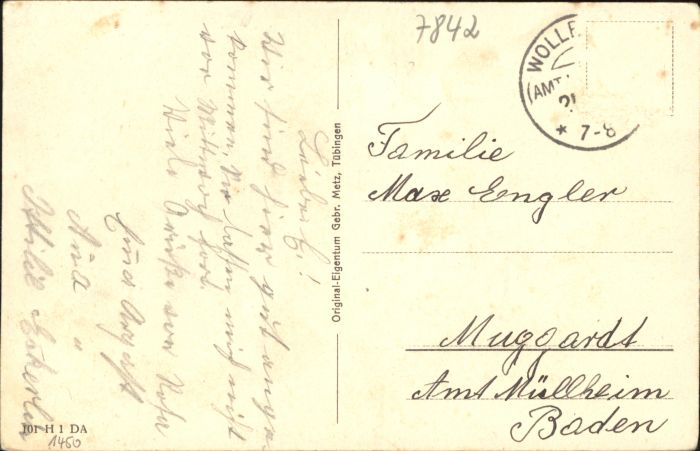 7842
WOLLB
(AMT
* 7-8
Familie
Max Engler
Muggardt
Amt Müllheim
Baden
Original-Eigentum Gebr. Metz, Tübingen
Liebe E.!
Wir sind hier gut ange
kommen, Sie lassen mich nicht
vor Mittwoch fort.
Viele Grüße von
und
u
101 H 1 DA
1450